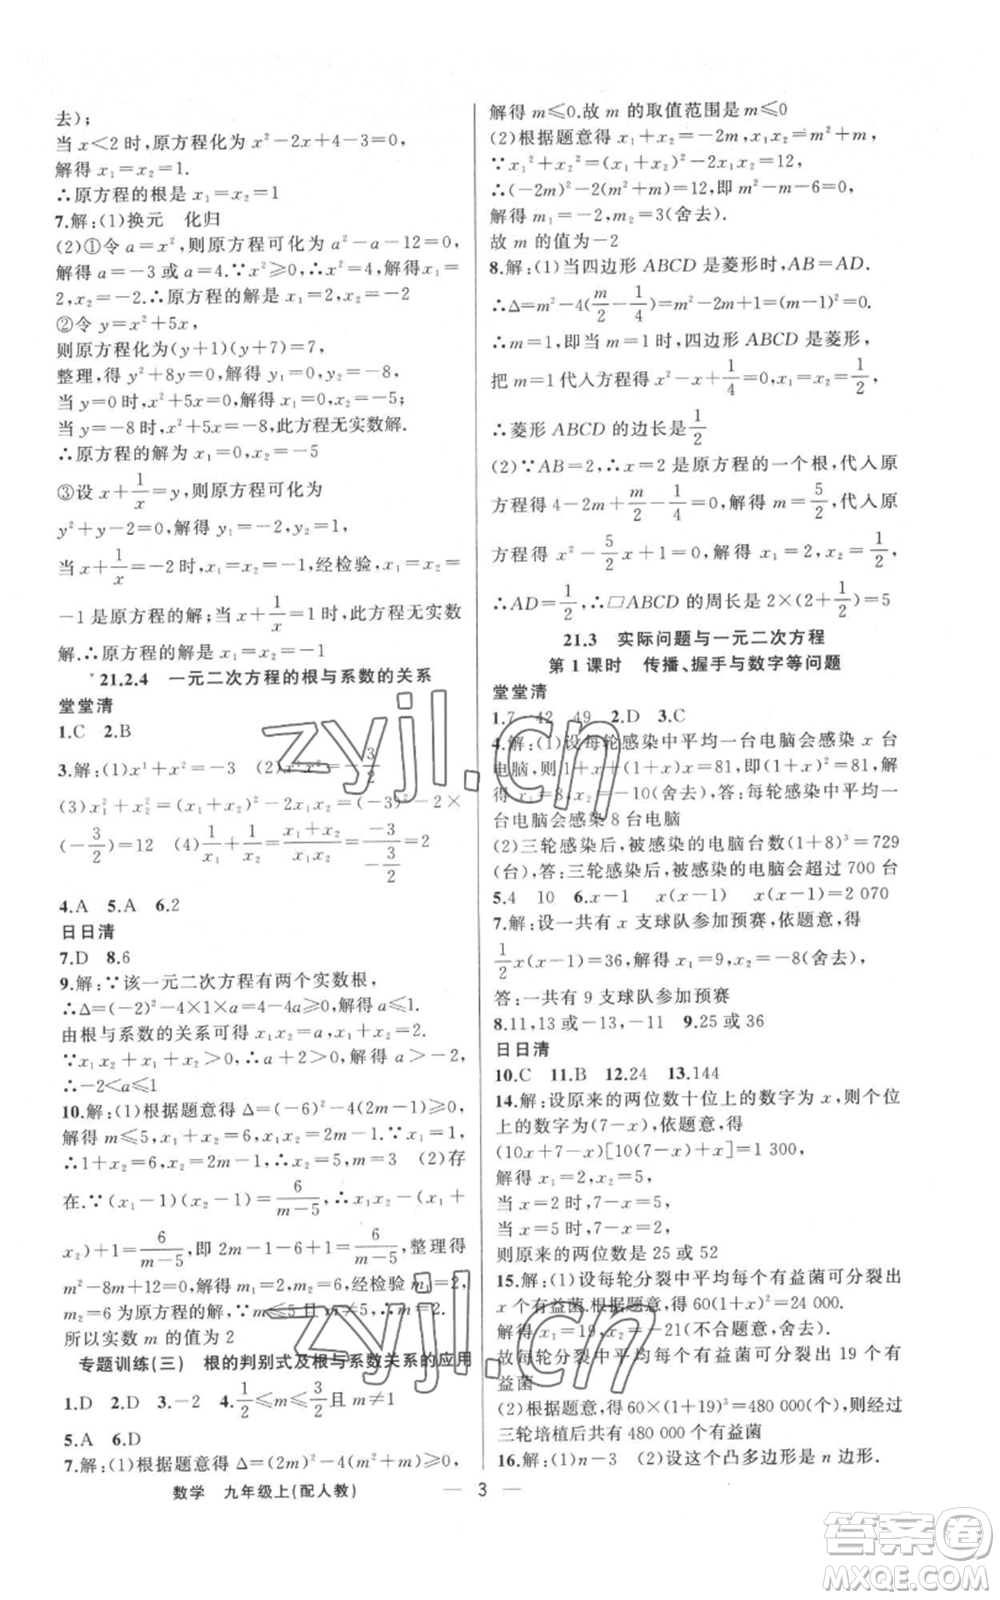 去);
当 x<2 时,原方程化为 x²-2x+4-3=0,
解得 x₁=x₂=1.
∴原方程的根是 x₁=x₂=1
7.解:(1)换元 化归
(2)①令 a=x²,则原方程可化为 a²-a-12=0,
解得 a=-3 或 a=4.∵x²≥0,∴x²=4,解得 x₁=
2,x₂=-2.∴原方程的解是 x₁=2,x₂=-2
②令 y=x²+5x,
则原方程化为(y+1)(y+7)=7,
整理,得 y²+8y=0,解得 y₁=0,y₂=-8,
当 y=0 时,x²+5x=0,解得 x₁=0,x₂=-5;
当 y=-8 时,x²+5x=-8,此方程无实数解.
∴原方程的解为 x₁=0,x₂=-5
③设 x+1/x=y,则原方程可化为
y²+y-2=0,解得 y₁=-2,y₂=1,
当 x+1/x=-2时,x₁=x₂=-1,经检验,x=
-1 是原方程的解;当 x+1/x=1 时,此方程无实数
解.∴原方程的解为 x₁=x₂=-1
21.2.4 一元二次方程的根与系数的关系
堂堂清
1.C 2.B
3.解:(1)x¹+x²=-3 (2)x¹x²=-3/2
(3)x₁²+x₂²=(x₁+x₂)²-2x₁x₂=(-3)²-2×
(-3/2)=12 (4)1/x₁+1/x₂=(x₁+x₂)/(x₁x₂)=-3/(-3/2)=2
4.A 5.A 6.2
日日清
7.D 8.6
9.解:∵该一元二次方程有两个实数根,
∴Δ=(-2)²-4×1×a=4-4a≥0,解得 a≤1,
由根与系数的关系可得 x₁x₂=a,x₁+x₂=2.
∵x₁x₂+x₁+x₂>0,∴a+2>0,解得 a>-2,
∴-2<a≤1
10.解:(1)根据题意得 Δ=(-6)²-4(2m-1)≥0,
解得 m≤5,x₁+x₂=6,x₁x₂=2m-1,∵x₁=1,
∴1+x₂=6,x₂=2m-1,∴x₂=5,m=3 (2)存
在.∵(x₁-1)(x₂-1)=6/(m-5),∴x₁x₂-(x₁+
x₂)+1=6/(m-5),即 2m-1-6+1=6/(m-5),整理得
m²-8m+12=0,解得 m₁=2,m₂=6,经检验 m₁=2,
m₂=6 为原方程的解,∵m≤5 且 m≠5,∴m=2,
所以实数 m 的值为 2
专题训练(三) 根的判别式及根与系数关系的应用
1.D 2.D 3.-2 4.1/2≤m≤3/2且 m≠1
5.A 6.D
7.解:(1)根据题意得 Δ=(2m)²-4(m²+m)≥0,
解得 m≤0.故 m 的取值范围是 m≤0
(2)根据题意得 x₁+x₂=-2m,x₁x₂=m²+m,
∵x₁²+x₂²=(x₁+x₂)²-2x₁x₂=12,
∴(-2m)²-2(m²+m)=12,即 m²-m-6=0,
解得 m₁=-2,m₂=3(舍去).
故 m 的值为-2
8.解:(1)当四边形 ABCD 是菱形时,AB=AD.
∴Δ=m²-4(m/2-1/4)=m²-2m+1=(m-1)²=0.
∴m=1,即当 m=1 时,四边形 ABCD 是菱形,
把 m=1 代入方程得 x²-x+1/4=0,∴x₁=x₂=1/2,
∴菱形 ABCD 的边长是1/2
(2)∵AB=2,∴x=2 是原方程的一个根,代入原
方程得 4-2m+m/2-1/4=0,解得 m=5/2,代入原
方程得 x²-5/2x+1=0,解得 x₁=2,x₂=1/2,
∴AD=1/2,∴□ABCD 的周长是 2×(2+1/2)=5
21.3 实际问题与一元二次方程
第1课时 传播、握手与数字等问题
堂堂清
1.7 42 49 2.D 3.C
4.解:(1)设每轮感染中平均一台电脑会感染 x 台
电脑,则 1+x+x(1+x)=81,即(1+x)²=81,
解得 x₁=8,x₂=-10(舍去).答:每轮感染中平均一
台电脑会感染 8 台电脑
(2)三轮感染后,被感染的电脑台数(1+8)³=729
(台).答:三轮感染后,被感染的电脑会超过 700 台
5.4 10 6.x-1 x(x-1) x(x-1)=2 070
7.解:设一共有 x 支球队参加预赛,依题意,得
1/2x(x-1)=36,解得 x₁=9,x₂=-8(舍去).
答:一共有 9 支球队参加预赛
8.11,13 或-13,-11 9.25 或 36
日日清
10.C 11.B 12.24 13.144
14.解:设原来的两位数十位上的数字为 x,则个位
上的数字为(7-x),依题意,得
(10x+7-x)[10(7-x)+x]=1 300,
解得 x₁=2,x₂=5,
当 x=2 时,7-x=5,
当 x=5 时,7-x=2,
则原来的两位数是 25 或 52
15.解:(1)设每轮分裂中平均每个有益菌可分裂出
x 个有益菌.根据题意,得 60(1+x)²=24 000.
解得 x₁=19,x₂=-21(不合题意,舍去).
故每轮分裂中平均每个有益菌可分裂出 19 个有
益菌
(2)根据题意,得 60×(1+19)³=480 000(个).故
三轮培植后共有 480 000 个有益菌
16.解:(1)n-3 (2)设这个凸多边形是 n 边形.
数学 九年级上(配人教) — 3 —
zyjl.cn
zyjl.cn
答案圈
MXQE.COM